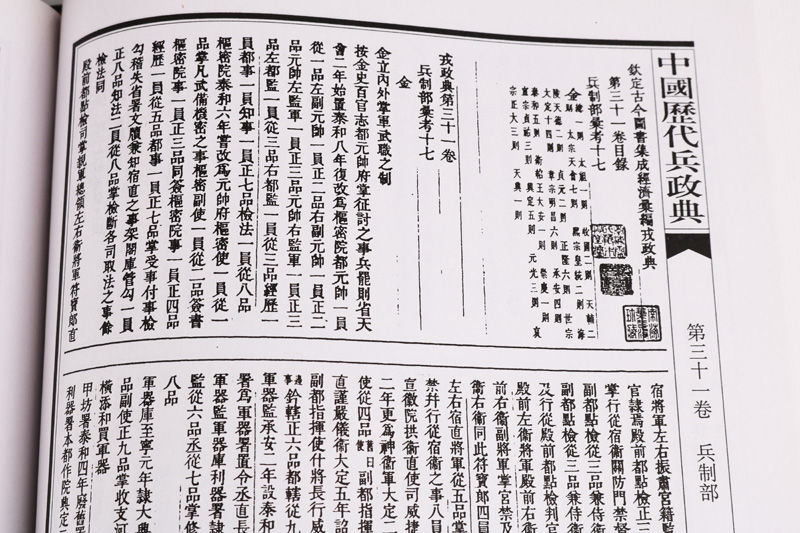 中國歷代兵政典
第三十一卷 兵制部
欽定古今圖書集成經濟彙編戎政典
第三十一卷目錄
兵制部彙考十七
金總一則 太祖一則 收國二則 天輔二
則 太宗天會七則 熙宗皇統二則 海
陵天德二則 貞元二則 正隆六則 世宗
大定十四則 章宗明昌六則 承安四則
泰和五則 衛紹王大安一則 崇慶一則
宣宗貞祐三則 興定五則 元光三則 哀
宗正大三則 天興一則
戎政典第三十一卷
兵制部彙考十七
金
金立內外掌軍武職之制
按金史百官志都元帥府掌征討之事兵罷則省天
會二年始置泰和八年復改為樞密院都元帥一員
從一品左副元帥一員正二品右副元帥一員正二
品元帥左監軍一員正三品元帥右監軍一員正三
品左都監一員從三品右都監一員從三品經歷一
員都事一員知事一員正七品檢法一員從八品
樞密院泰和六年嘗改為元帥府樞密使一員從一
品掌凡武備機密之事樞密副使一員從二品簽書
樞密院事一員正三品同簽樞密院事一員正四品
經歷一員從五品都事一員正七品掌受事付事檢
勾稽失省署文牘兼知宿直之事架閣庫管勾一員
正八品知法二員從八品掌檢斷各司取法之事餘
檢法同
殿前都點檢司掌親軍總領左右衛將軍符寶郎宿直
宿將軍左右振肅官籍監
官隸焉殿前都點檢正三
掌行從宿衛關防門禁督
副都點檢從三品兼侍衛
副都點檢從三品兼侍衛
及行從殿前都點檢判官
殿前左衛將軍殿前右衛
前右衛副將軍掌宮禁及
衛右衛同此符寶郎四員
左右宿直將軍從五品掌
禁幷行從宿衛之事八員
宣徽院拱衛直使司威捷
二年更為神衛軍大定二
使從四品舊曰使副都指揮
直謹嚴儀衛大定五年詔
副都指揮使什將長行威
邊事鈐轄正六品都轄從九
軍器監承安二年設泰和
署為軍器署置令丞直長
軍器監軍器庫利器署隸
監從六品丞從七品掌修
八品
軍器庫至寧元年隸大興
品副使正九品掌收支河
橫添和買軍器
甲坊署泰和四年廢舊置
利器署本都作院興定二